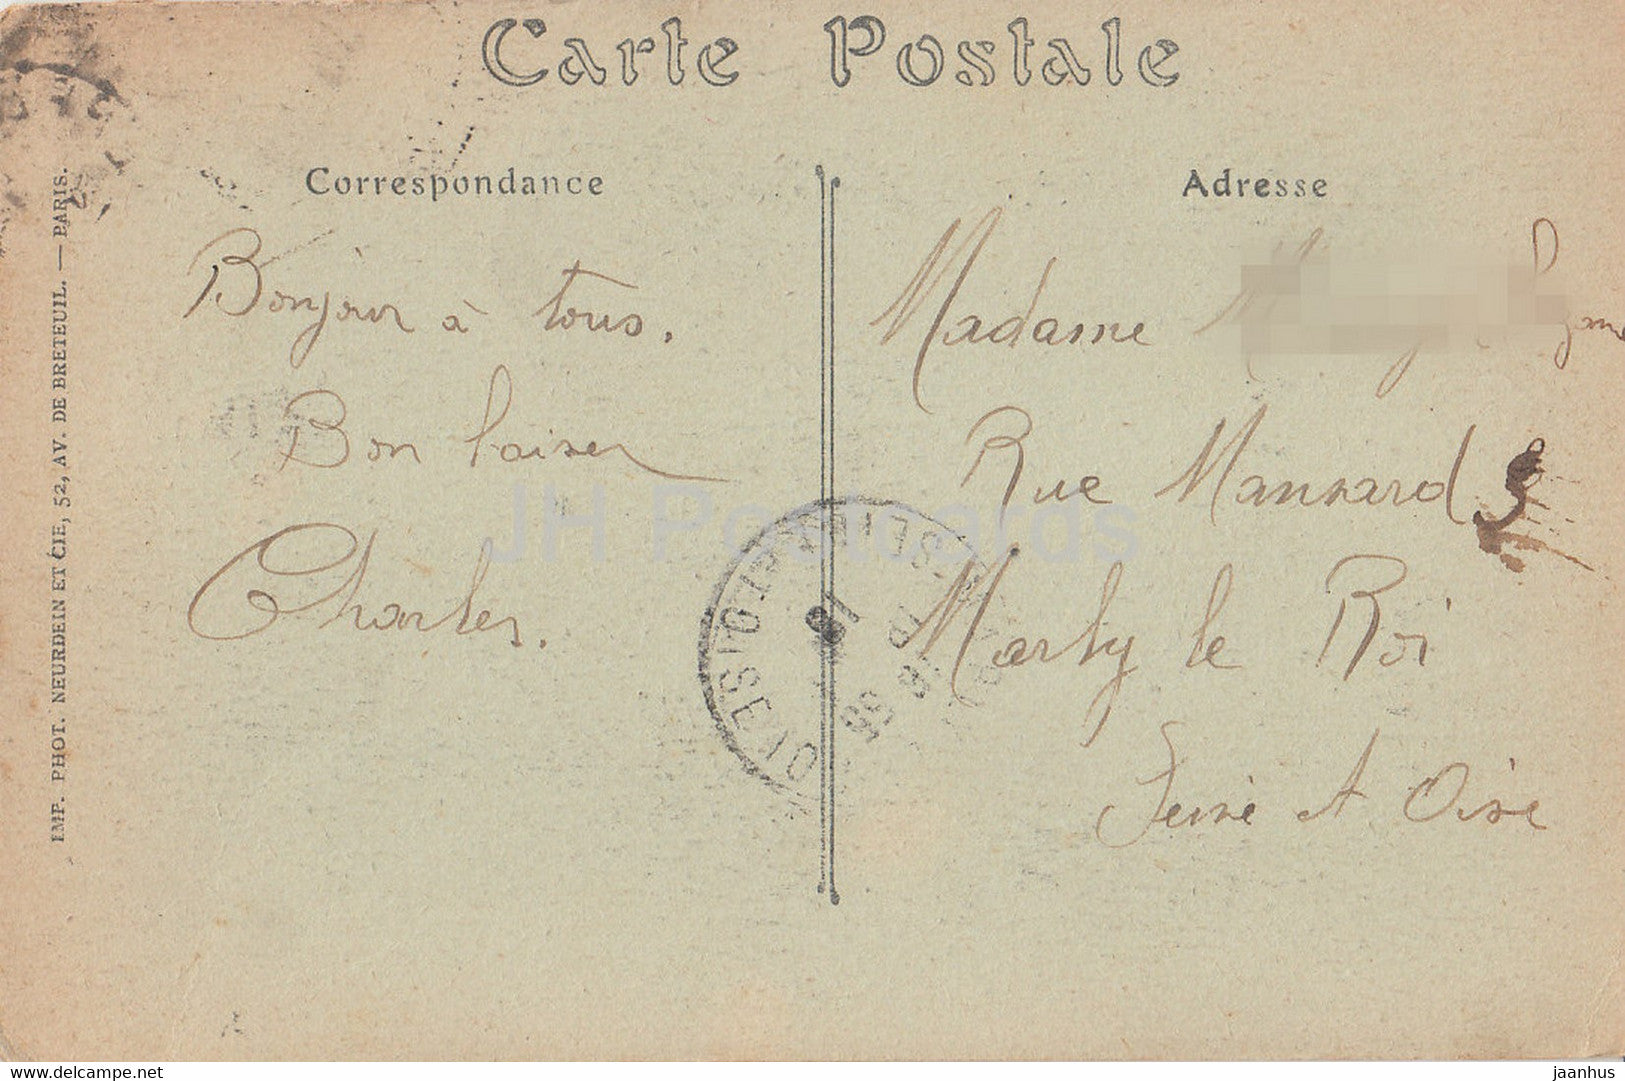 Carte Postale
Correspondance
Bonjour à tous.
Bon baiser
Charles.
Adresse
Madame
Rue Mansard
Marly le Roi
Seine et Oise
IMP. PHOT. NEURDEIN ET CIE, 52, AV. DE BRETEUIL. — PARIS.
JH Postcards
delcampe.net
jaanhus